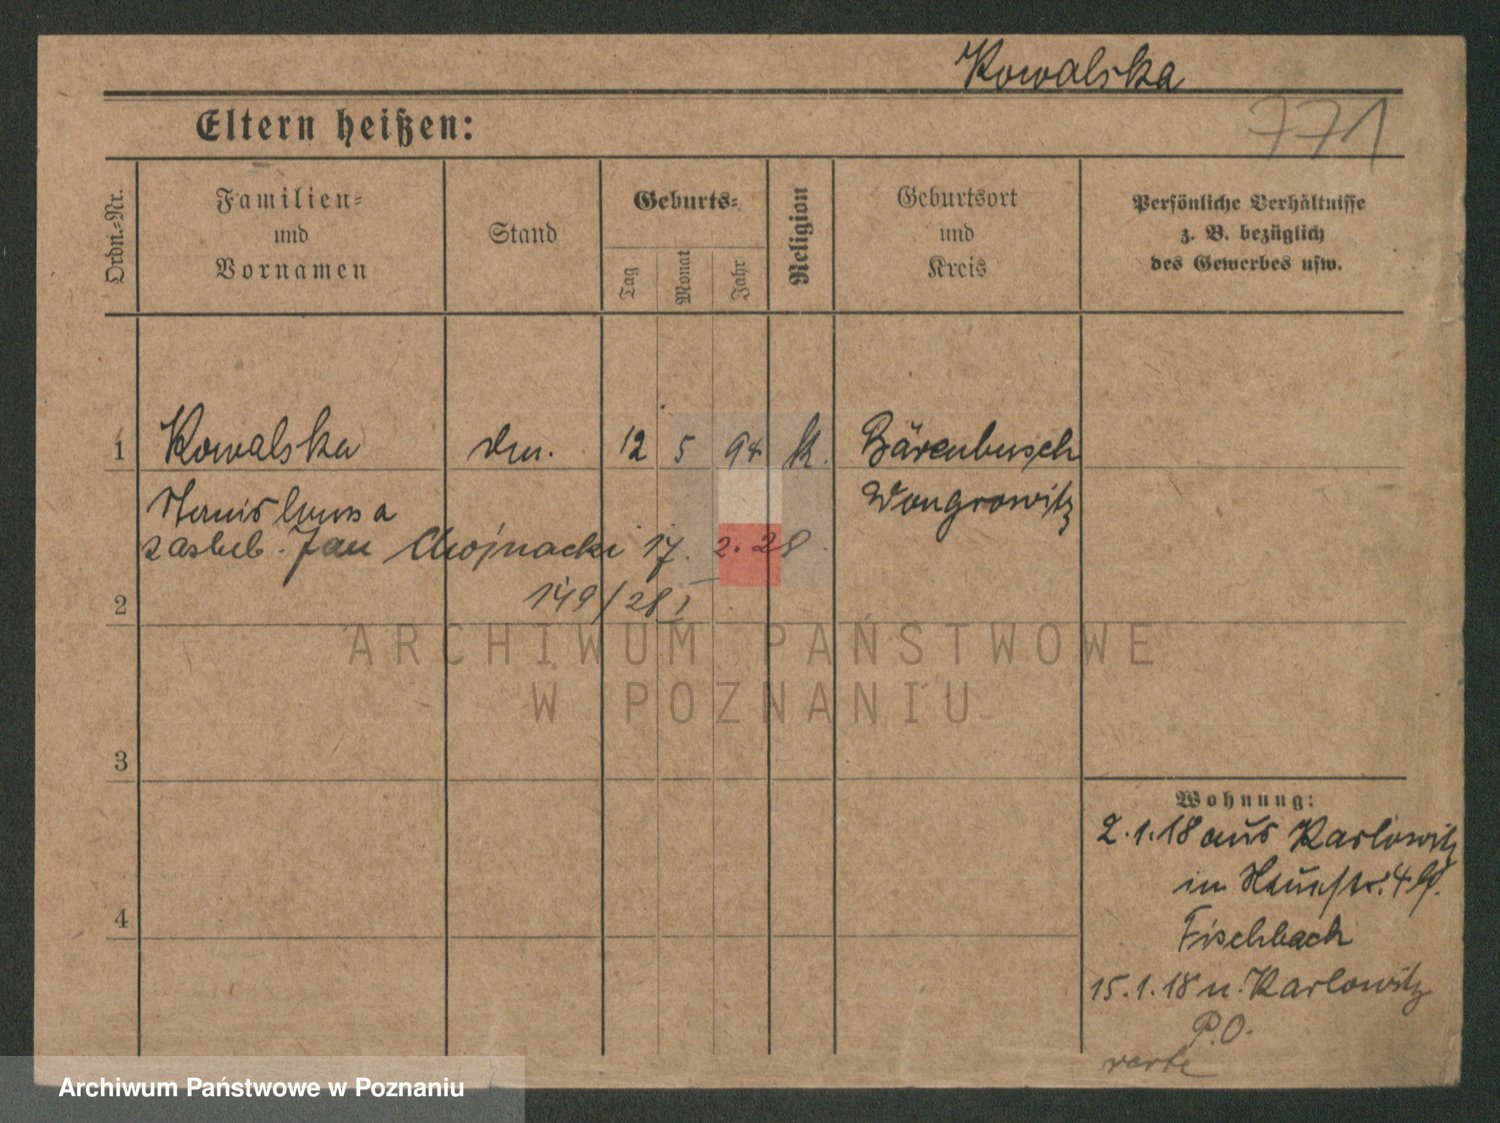 Kowalska
Eltern heißen:
771
Ordn.-Nr.
Familien-
und
Vornamen
Stand
Geburts-
Tag
Monat
Jahr
Religion
Geburtsort
und
Kreis
Persönliche Verhältnisse
z. B. bezüglich
des Gewerbes usw.
1 Kowalska 12 5 94 k. Bärenbusch
Stanislawa Wongrowitz
zaslub. Jan Chojnacki 17. 2. 28.
149/28 I
2
ARCHIWUM PAŃSTWOWE
W POZNANIU
3
Wohnung:
2.1.18 aus Karlowitz
in 4
Fischbach
4
15.1.18 n. Karlowitz
P.O.
verte
Archiwum Państwowe w Poznaniu